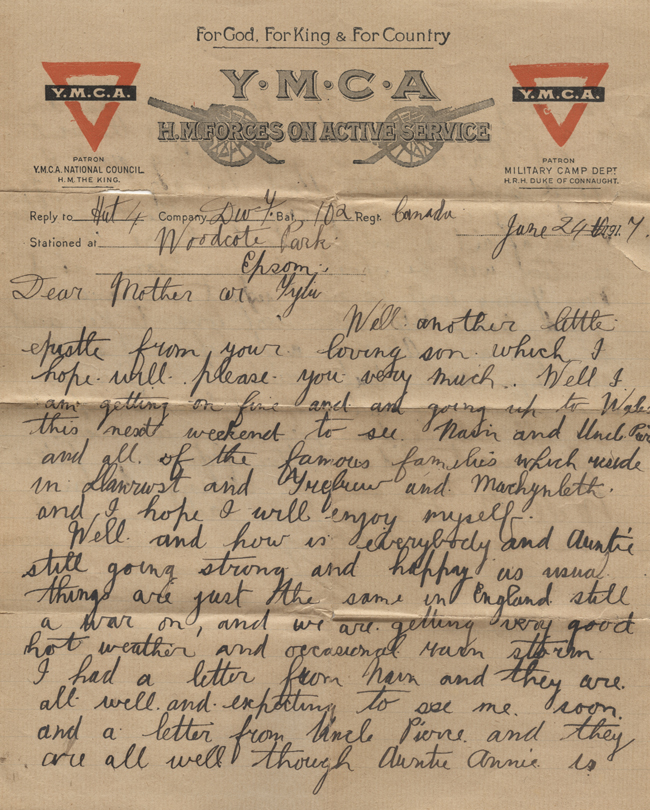 For God, For King & For Country
Y.M.C.A.
Y·M·C·A
Y.M.C.A.
H.M FORCES ON ACTIVE SERVICE
PATRON
Y.M.C.A. NATIONAL COUNCIL
H.M. THE KING.
PATRON
MILITARY CAMP DEPT
H.R.H. DUKE OF CONNAUGHT.
Reply to Hut 4 Company Div Y. Bat. 102 Regt. Canada
June 24th 1917.
Stationed at Woodcote Park.
Epsom.
Dear Mother or
Well another little
epistle from your loving son which I
hope will please you very much.. Well I
am getting on fine and am going up to Wales
this next weekend to see Nain and Uncle Pier
and all of the famous families which reside
in Llanrwst and Trefriw and Machynleth.
and I hope I will enjoy myself.
Well and how is everybody and Auntie
still going strong and happy as usual
things are just the same in England still
a war on, and we are getting very good
hot weather and occasional rain storm
I had a letter from Nain and they are
all well and expecting to see me soon
and a letter from Uncle Pierre and they
are all well though Auntie Annie is